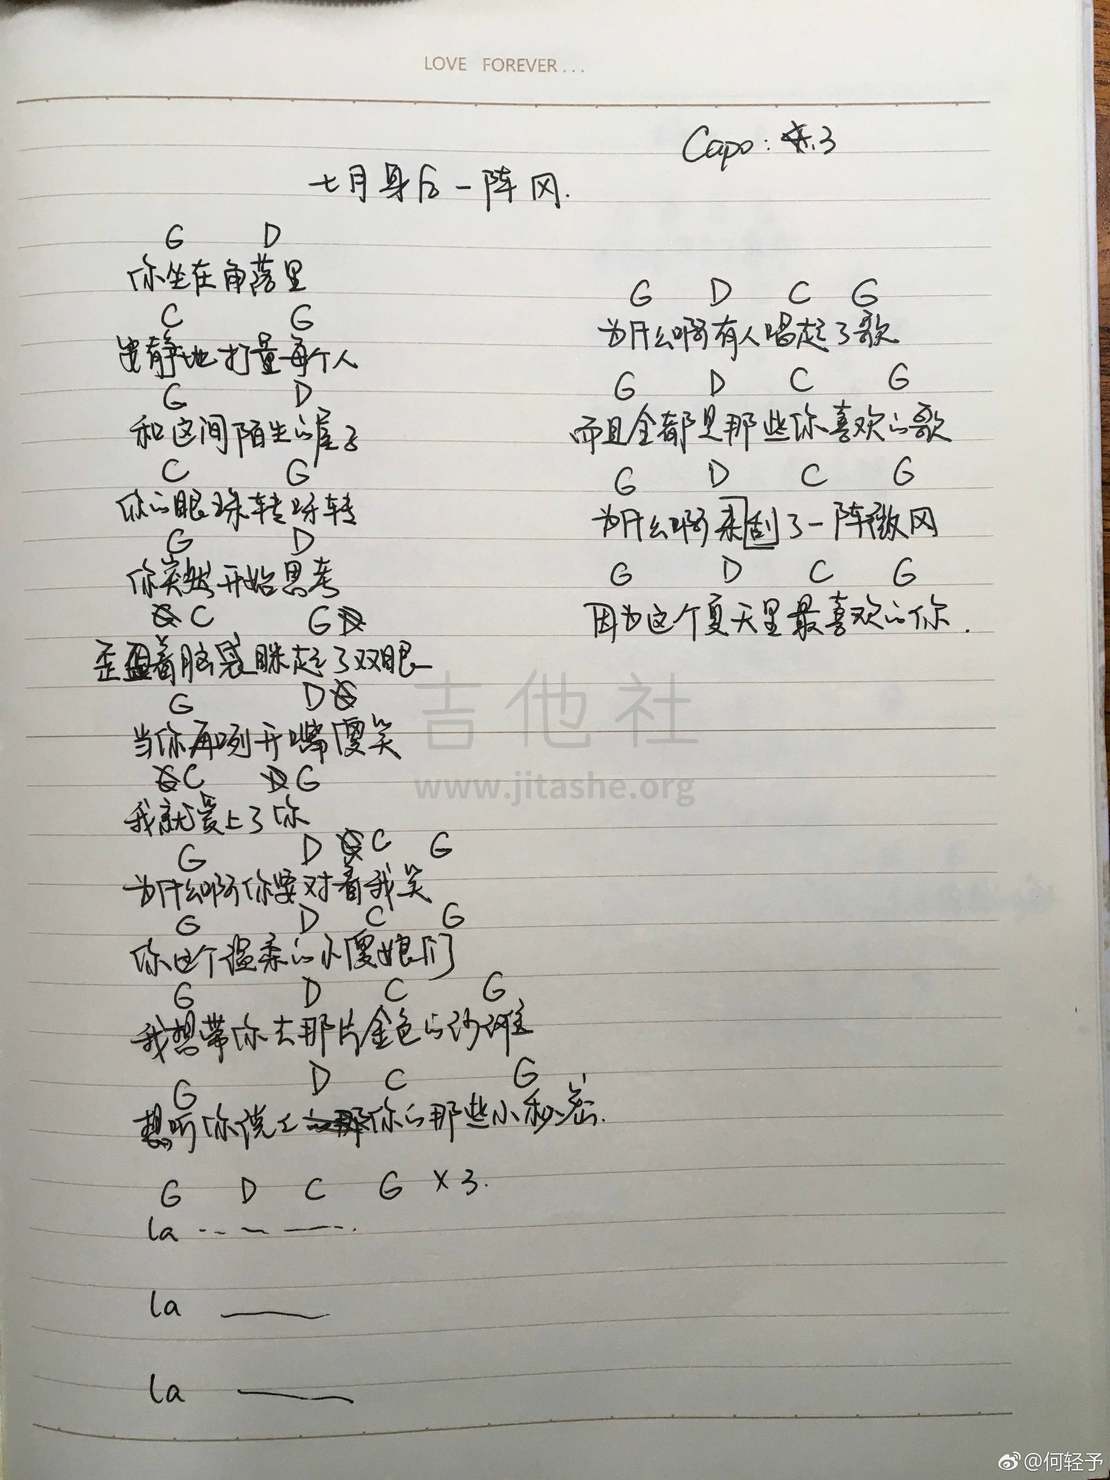 LOVE FOREVER...
Capo: 3
七月身后一阵风.
G D
你坐在角落里
C G
安静地打量每个人
G D
和这间陌生的屋子
C G
你的眼珠转呀转
G D
你突然开始思考
C G
歪着脑袋眯起了双眼
G D
当你再咧开嘴傻笑
C G
我就爱上了你
G D C G
为什么啊你要对着我笑
G D C G
你这个温柔的小傻娘们
G D C G
我想带你去那片金色的沙滩
G D C G
想听你说你的那些小秘密.
G D C G ×3.
la
la
la
G D C G
为什么啊有人唱起了歌
G D C G
而且全都是那些你喜欢的歌
G D C G
为什么啊刮了一阵微风
G D C G
因为这个夏天里最喜欢的你.
吉他社
www.jitashe.org
@何轻予